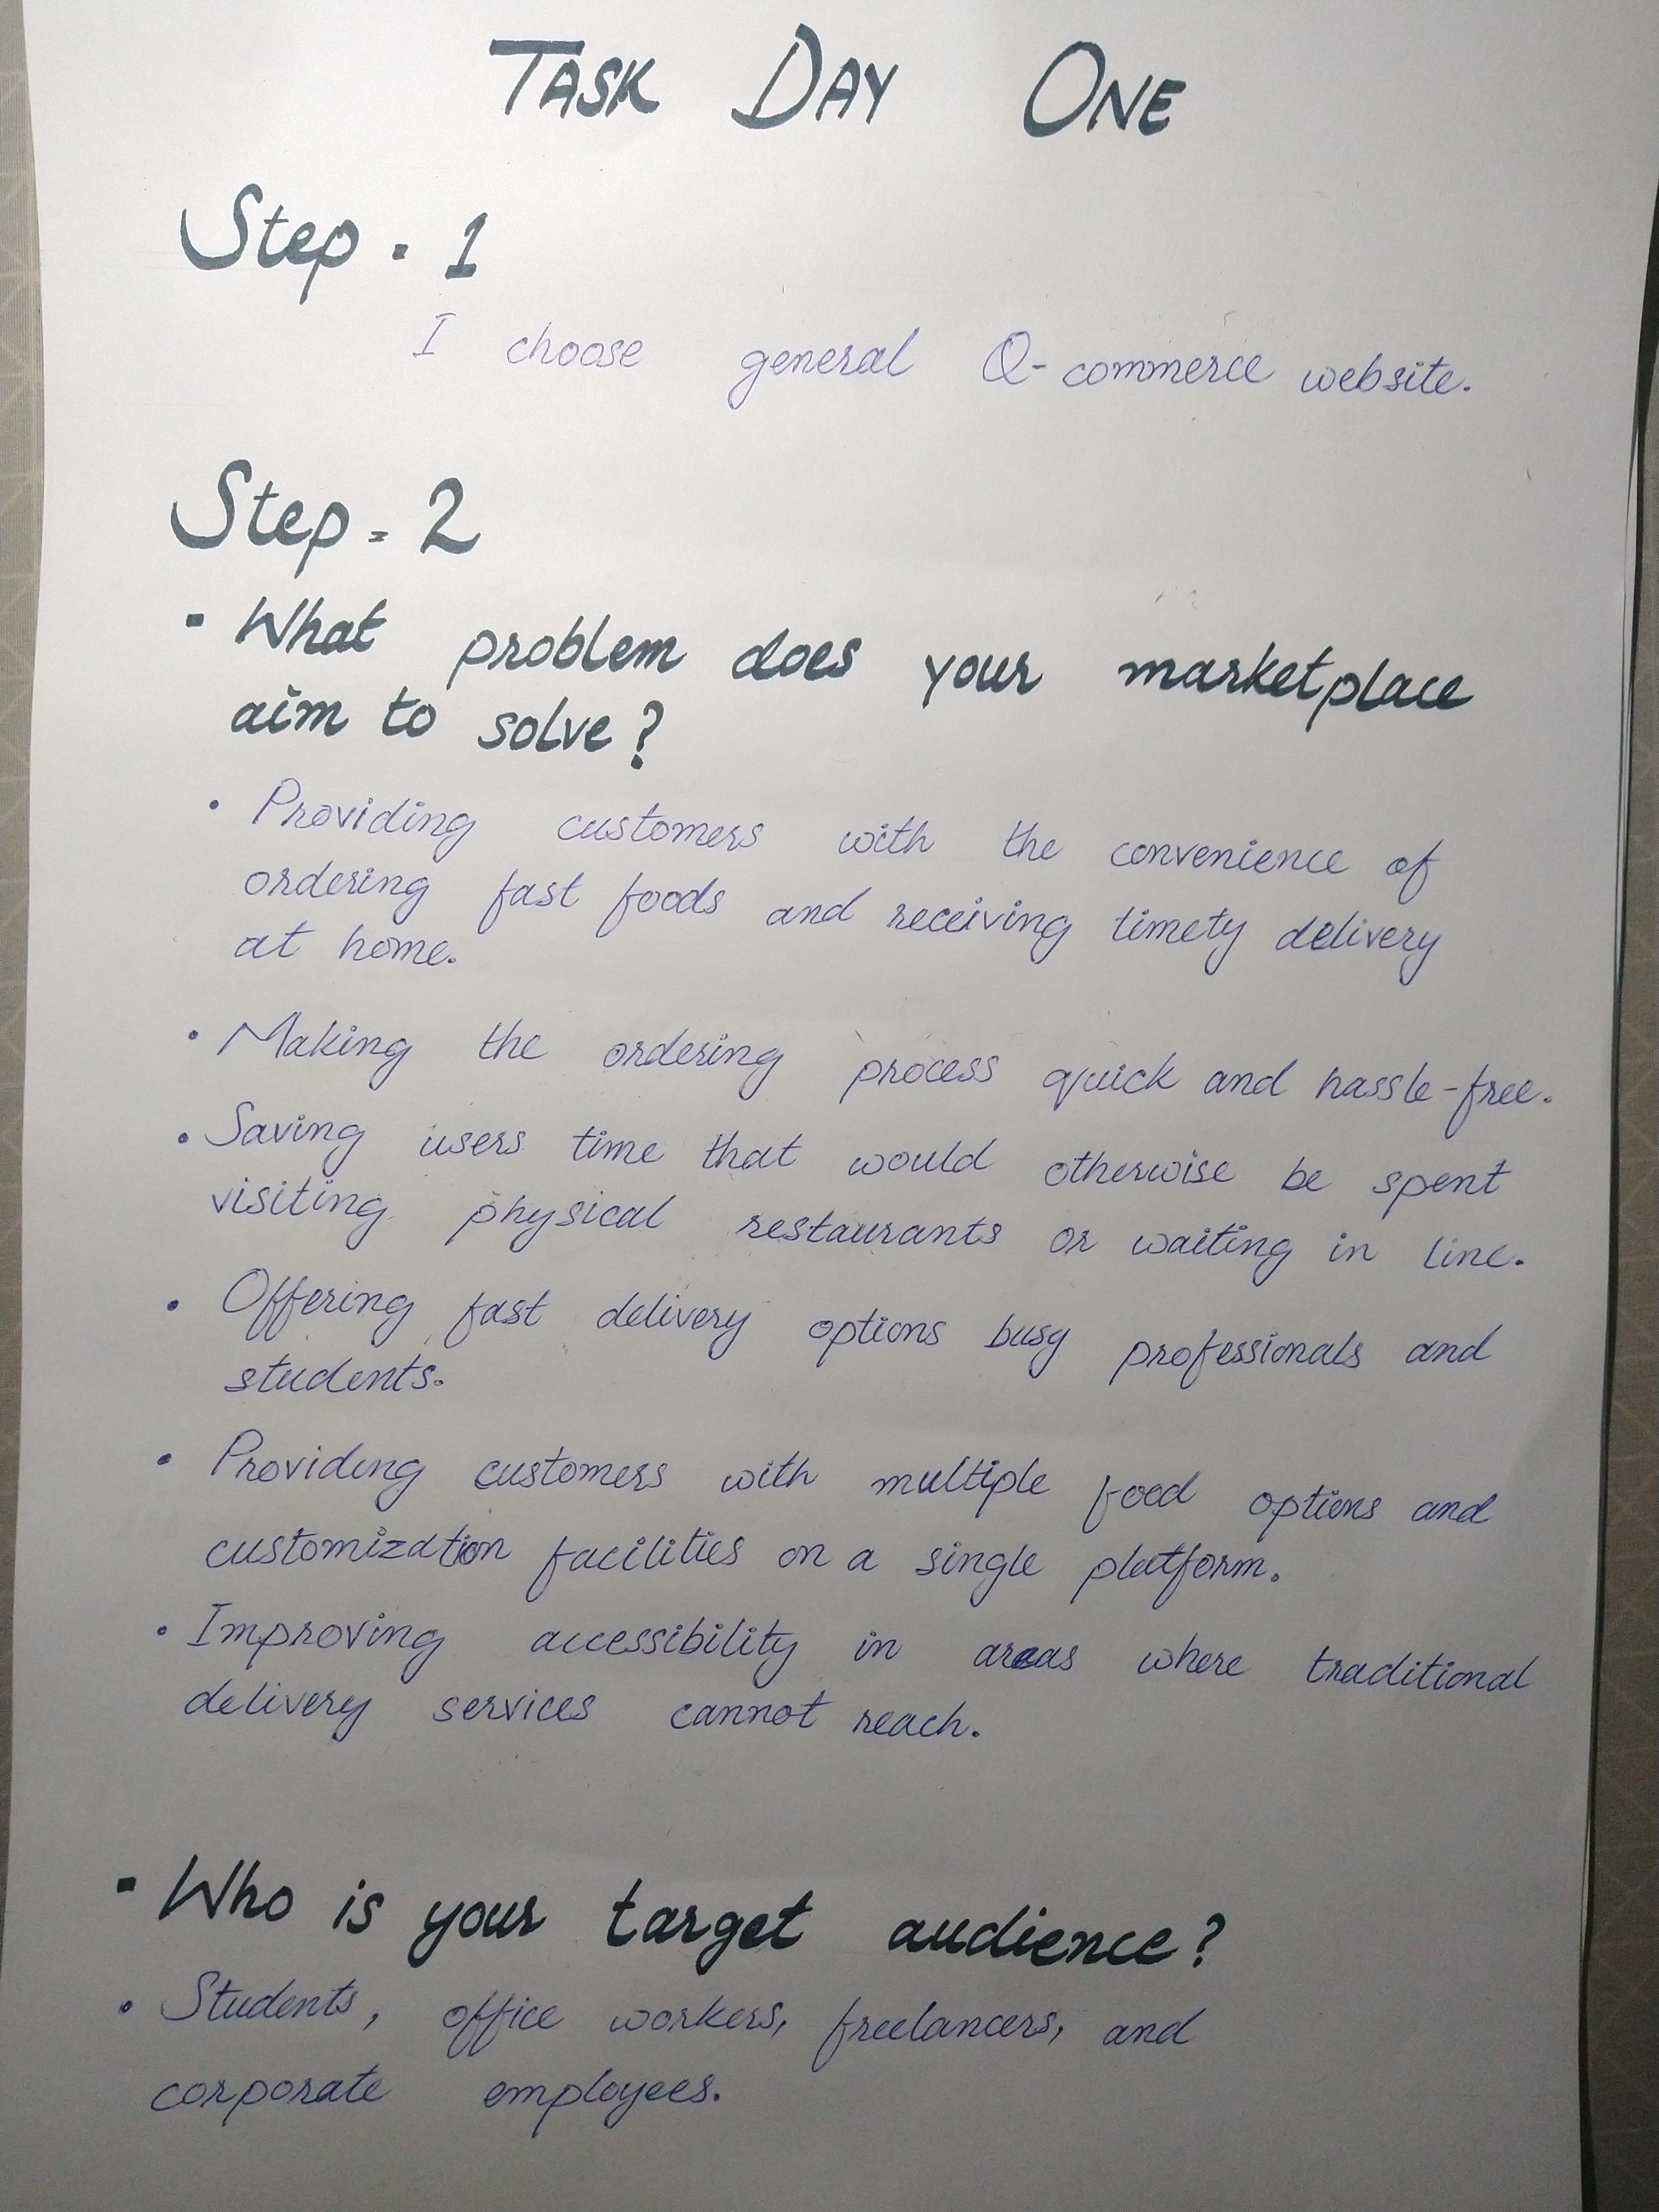 TASK DAY ONE
Step - 1
I choose general Q-commerce website.
Step - 2
- What problem does your marketplace
aim to solve?
• Providing customers with the convenience of
ordering fast foods and receiving timety delivery
at home.
• Making the ordering process quick and hassle-free.
• Saving users time that would otherwise be spent
visiting physical restaurants or waiting in line.
• Offering fast delivery options busy professionals and
students.
• Providing customers with multiple food options and
customization facilities on a single platform.
• Improving accessibility in areas where traditional
delivery services cannot reach.
- Who is your target audience?
• Students, office workers, freelancers, and
corporate employees.